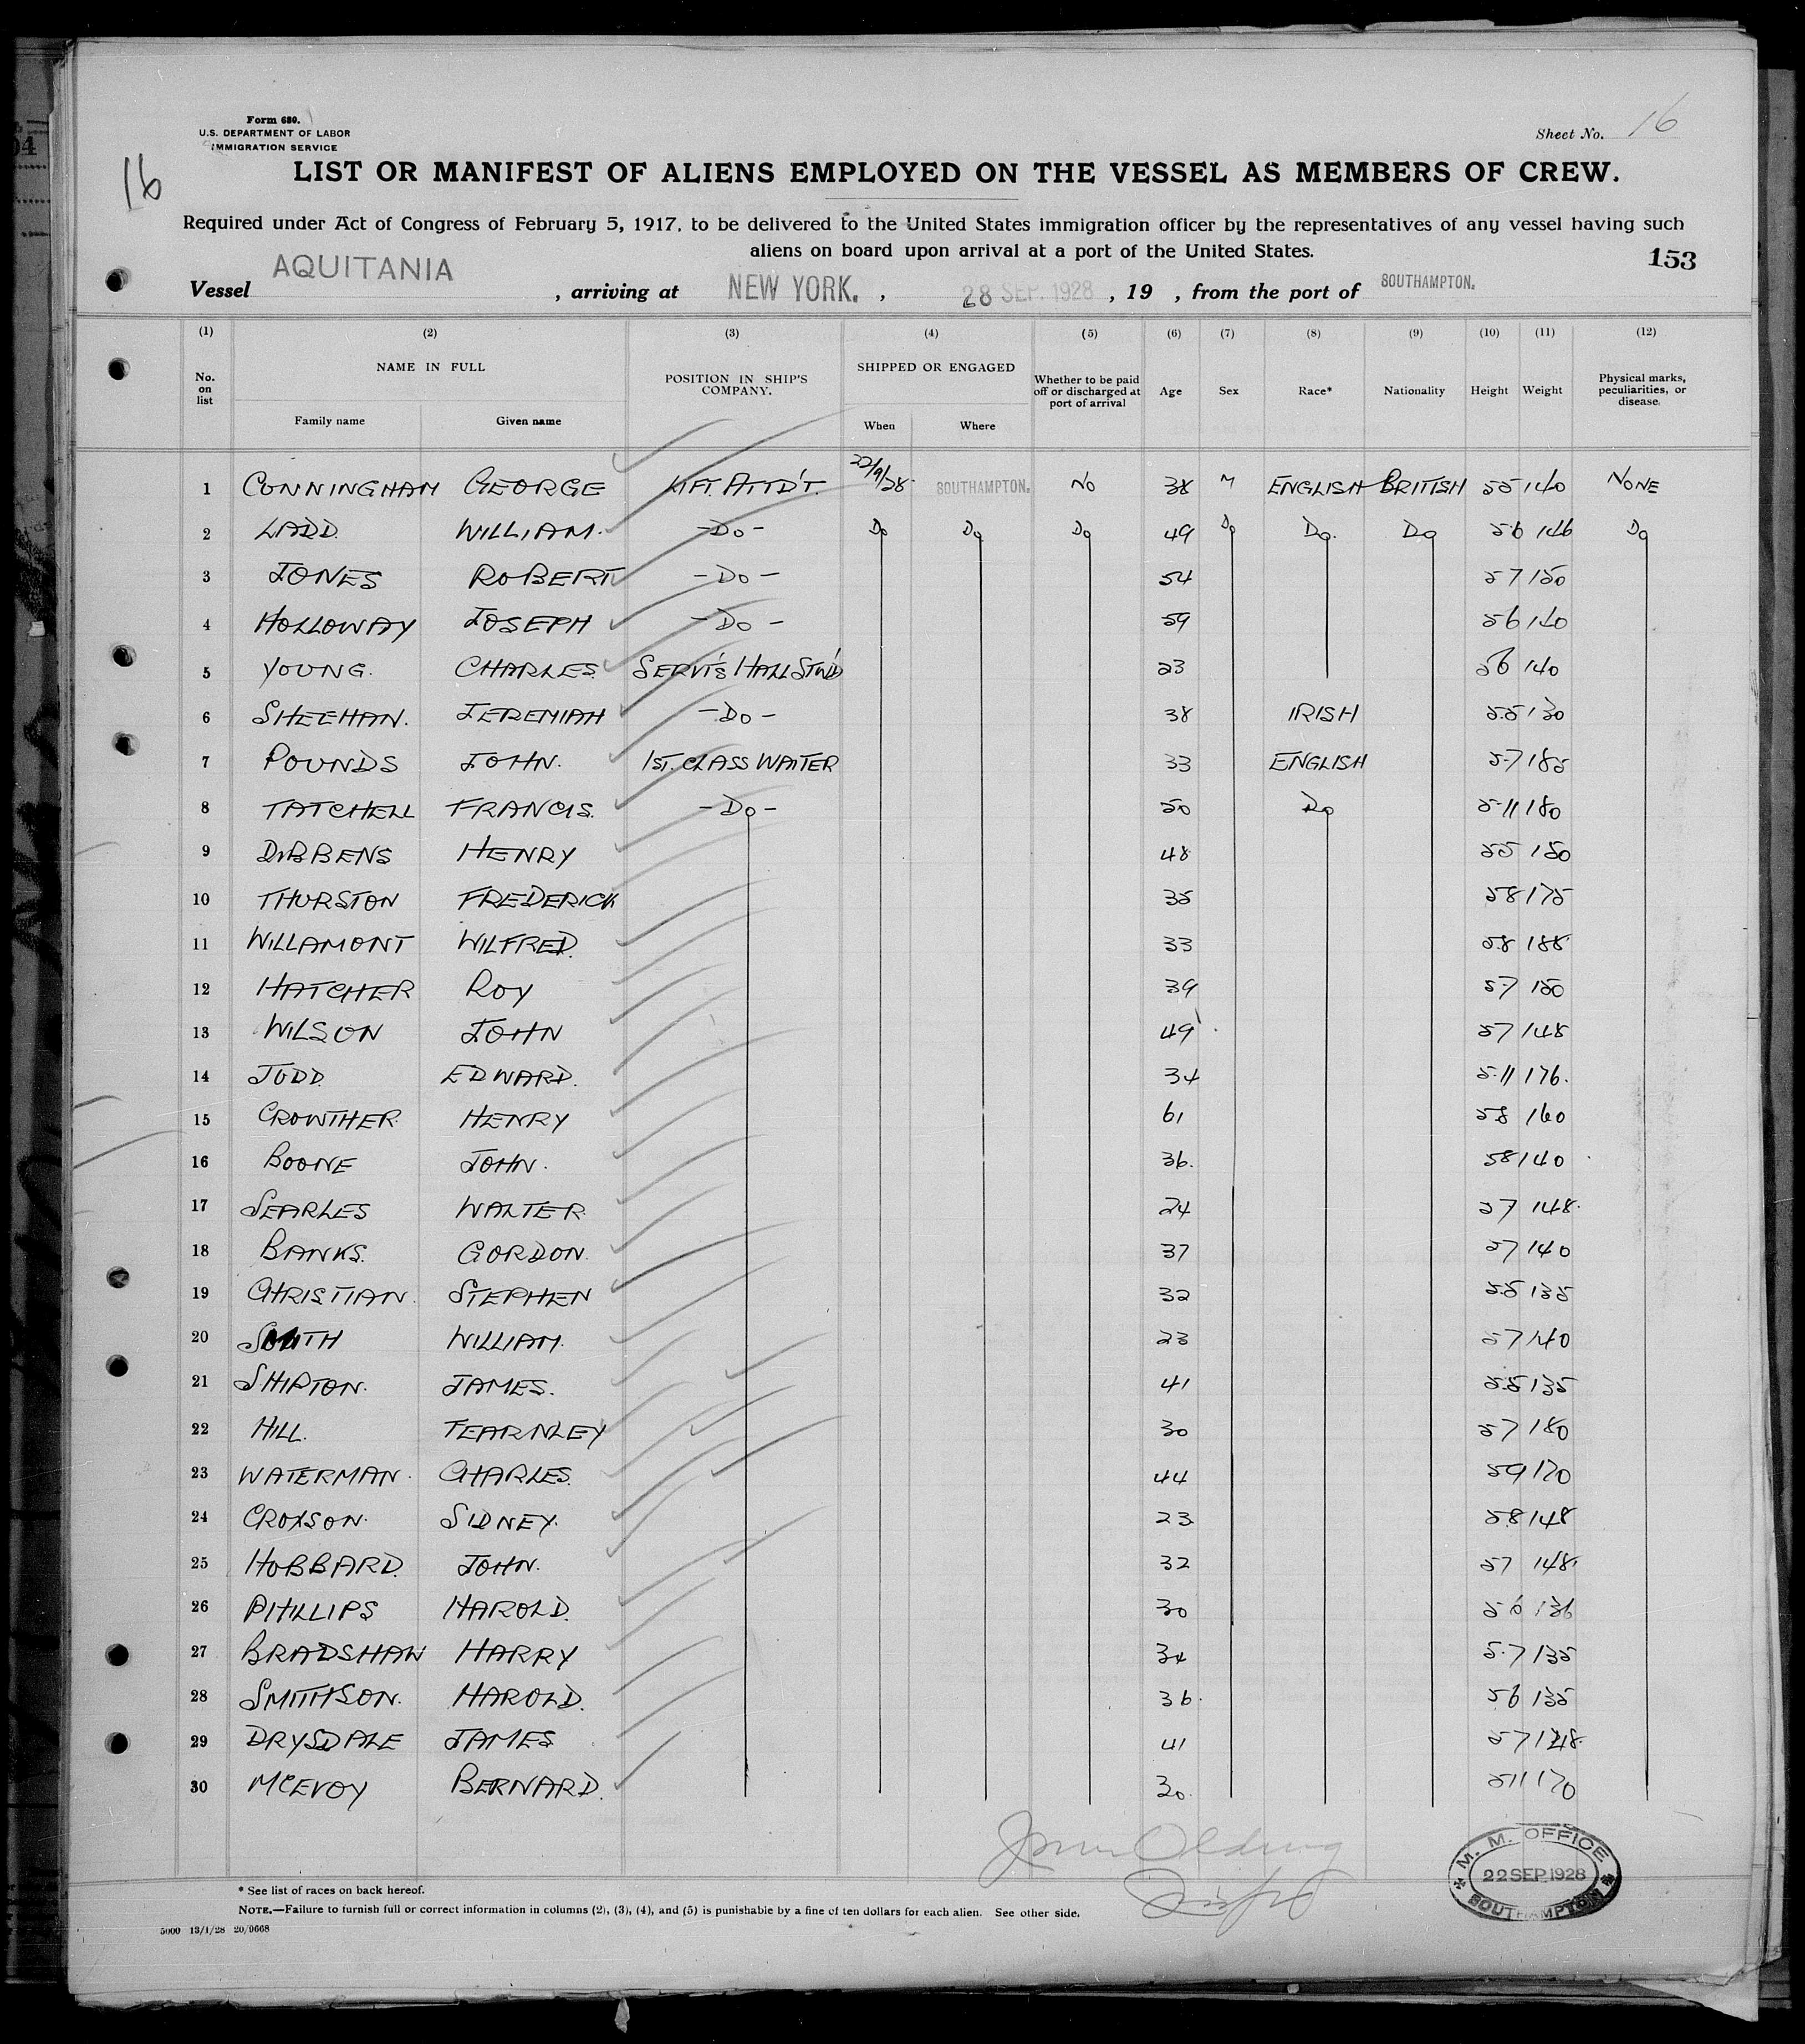 Form 680.
U.S. DEPARTMENT OF LABOR
IMMIGRATION SERVICE
Sheet No. 16
16
LIST OR MANIFEST OF ALIENS EMPLOYED ON THE VESSEL AS MEMBERS OF CREW.
Required under Act of Congress of February 5, 1917, to be delivered to the United States immigration officer by the representatives of any vessel having such
aliens on board upon arrival at a port of the United States.
153
Vessel AQUITANIA , arriving at NEW YORK. , 28 SEP. 1928 , 19 , from the port of SOUTHAMPTON.
(1) (2) (3) (4) (5) (6) (7) (8) (9) (10) (11) (12)
No. on list NAME IN FULL Family name Given name POSITION IN SHIP'S COMPANY. SHIPPED OR ENGAGED When Where Whether to be paid off or discharged at port of arrival Age Sex Race* Nationality Height Weight Physical marks, peculiarities, or disease.
1 CUNNINGHAM GEORGE LIFT. ATTD'T. 22/9/28 SOUTHAMPTON. NO 38 M ENGLISH BRITISH 55 140 NONE
2 LADD. WILLIAM. -Do- Do Do Do 49 Do Do. Do 56 146 Do
3 JONES ROBERT -Do- 54 57 150
4 HOLLOWAY JOSEPH -Do- 59 56 140
5 YOUNG. CHARLES. SERVT'S HALL STW'D 23 56 140
6 SHEEHAN. JEREMIAH -Do- 38 IRISH 55 130
7 POUNDS JOHN. 1ST. CLASS WAITER 33 ENGLISH 57 185
8 TATCHELL FRANCIS. -Do- 50 Do 5-11 180
9 DIBBENS HENRY 48 55 150
10 THURSTON FREDERICK 35 58 175
11 WILLAMONT WILFRED. 33 58 188
12 HATCHER ROY 39 57 150
13 WILSON JOHN 49 57 148
14 JUDD. EDWARD. 34 5-11 176.
15 CROWTHER. HENRY 61 58 160
16 BOONE JOHN. 36. 58 140
17 SEARLES WALTER. 24 57 148.
18 BANKS. GORDON. 37 57 140
19 CHRISTIAN. STEPHEN 32 55 135
20 SMITH WILLIAM. 23 57 140
21 SHIPTON. JAMES. 41 55 135
22 HILL. FEARNLEY 30 57 180
23 WATERMAN. CHARLES. 44 59 170
24 CROXSON. SIDNEY. 23 58 148
25 HUBBARD. JOHN. 32 57 148.
26 PHILLIPS HAROLD. 30 56 136
27 BRADSHAW HARRY 34 5.7 135
28 SMITHSON. HAROLD. 36. 56 135
29 DRYSDALE JAMES 41 57 148.
30 McEVOY BERNARD. 30. 511 170
M. M. OFFICE
22 SEP 1928
SOUTHAMPTON
* See list of races on back hereof.
NOTE.—Failure to furnish full or correct information in columns (2), (3), (4), and (5) is punishable by a fine of ten dollars for each alien. See other side.
5000 13/1/28 20/9668